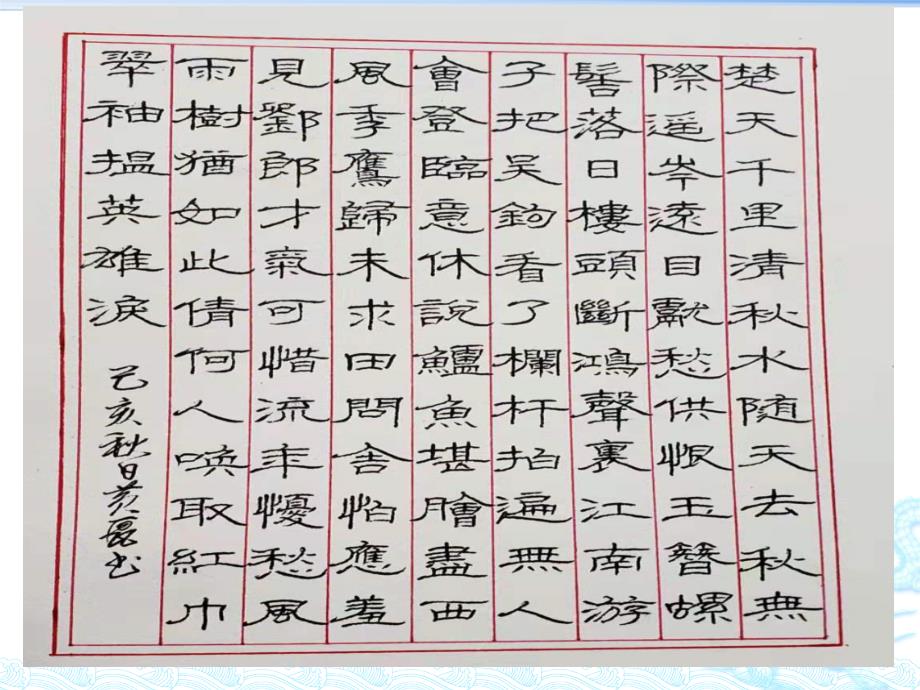 楚天千里清秋水随天去秋無
際遥岑遠目獻愁供恨玉簪螺
髻落日樓頭斷鴻聲裏江南游
子把吴鉤看了欄杆拍遍無人
會登臨意休說鱸魚堪膾盡西
風季鷹歸未求田問舍怕應羞
見劉郎才氣可惜流年懮愁風
雨樹猶如此倩何人喚取紅巾
翠袖揾英雄淚
己亥秋日黄书